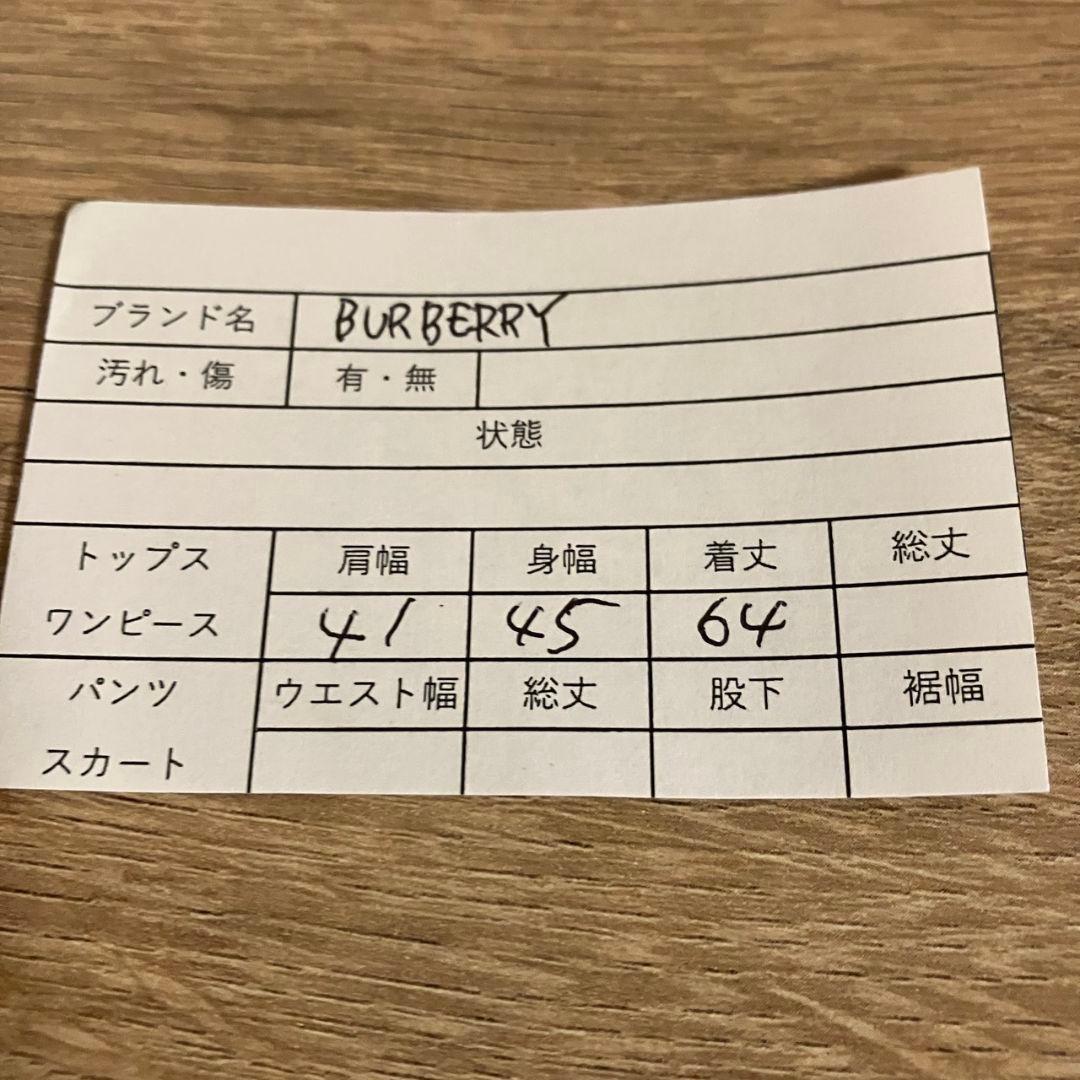 ブランド名 BURBERRY
汚れ・傷 有・無
状態
トップス 肩幅 身幅 着丈 総丈
ワンピース 41 45 64
パンツ ウエスト幅 総丈 股下 裾幅
スカート